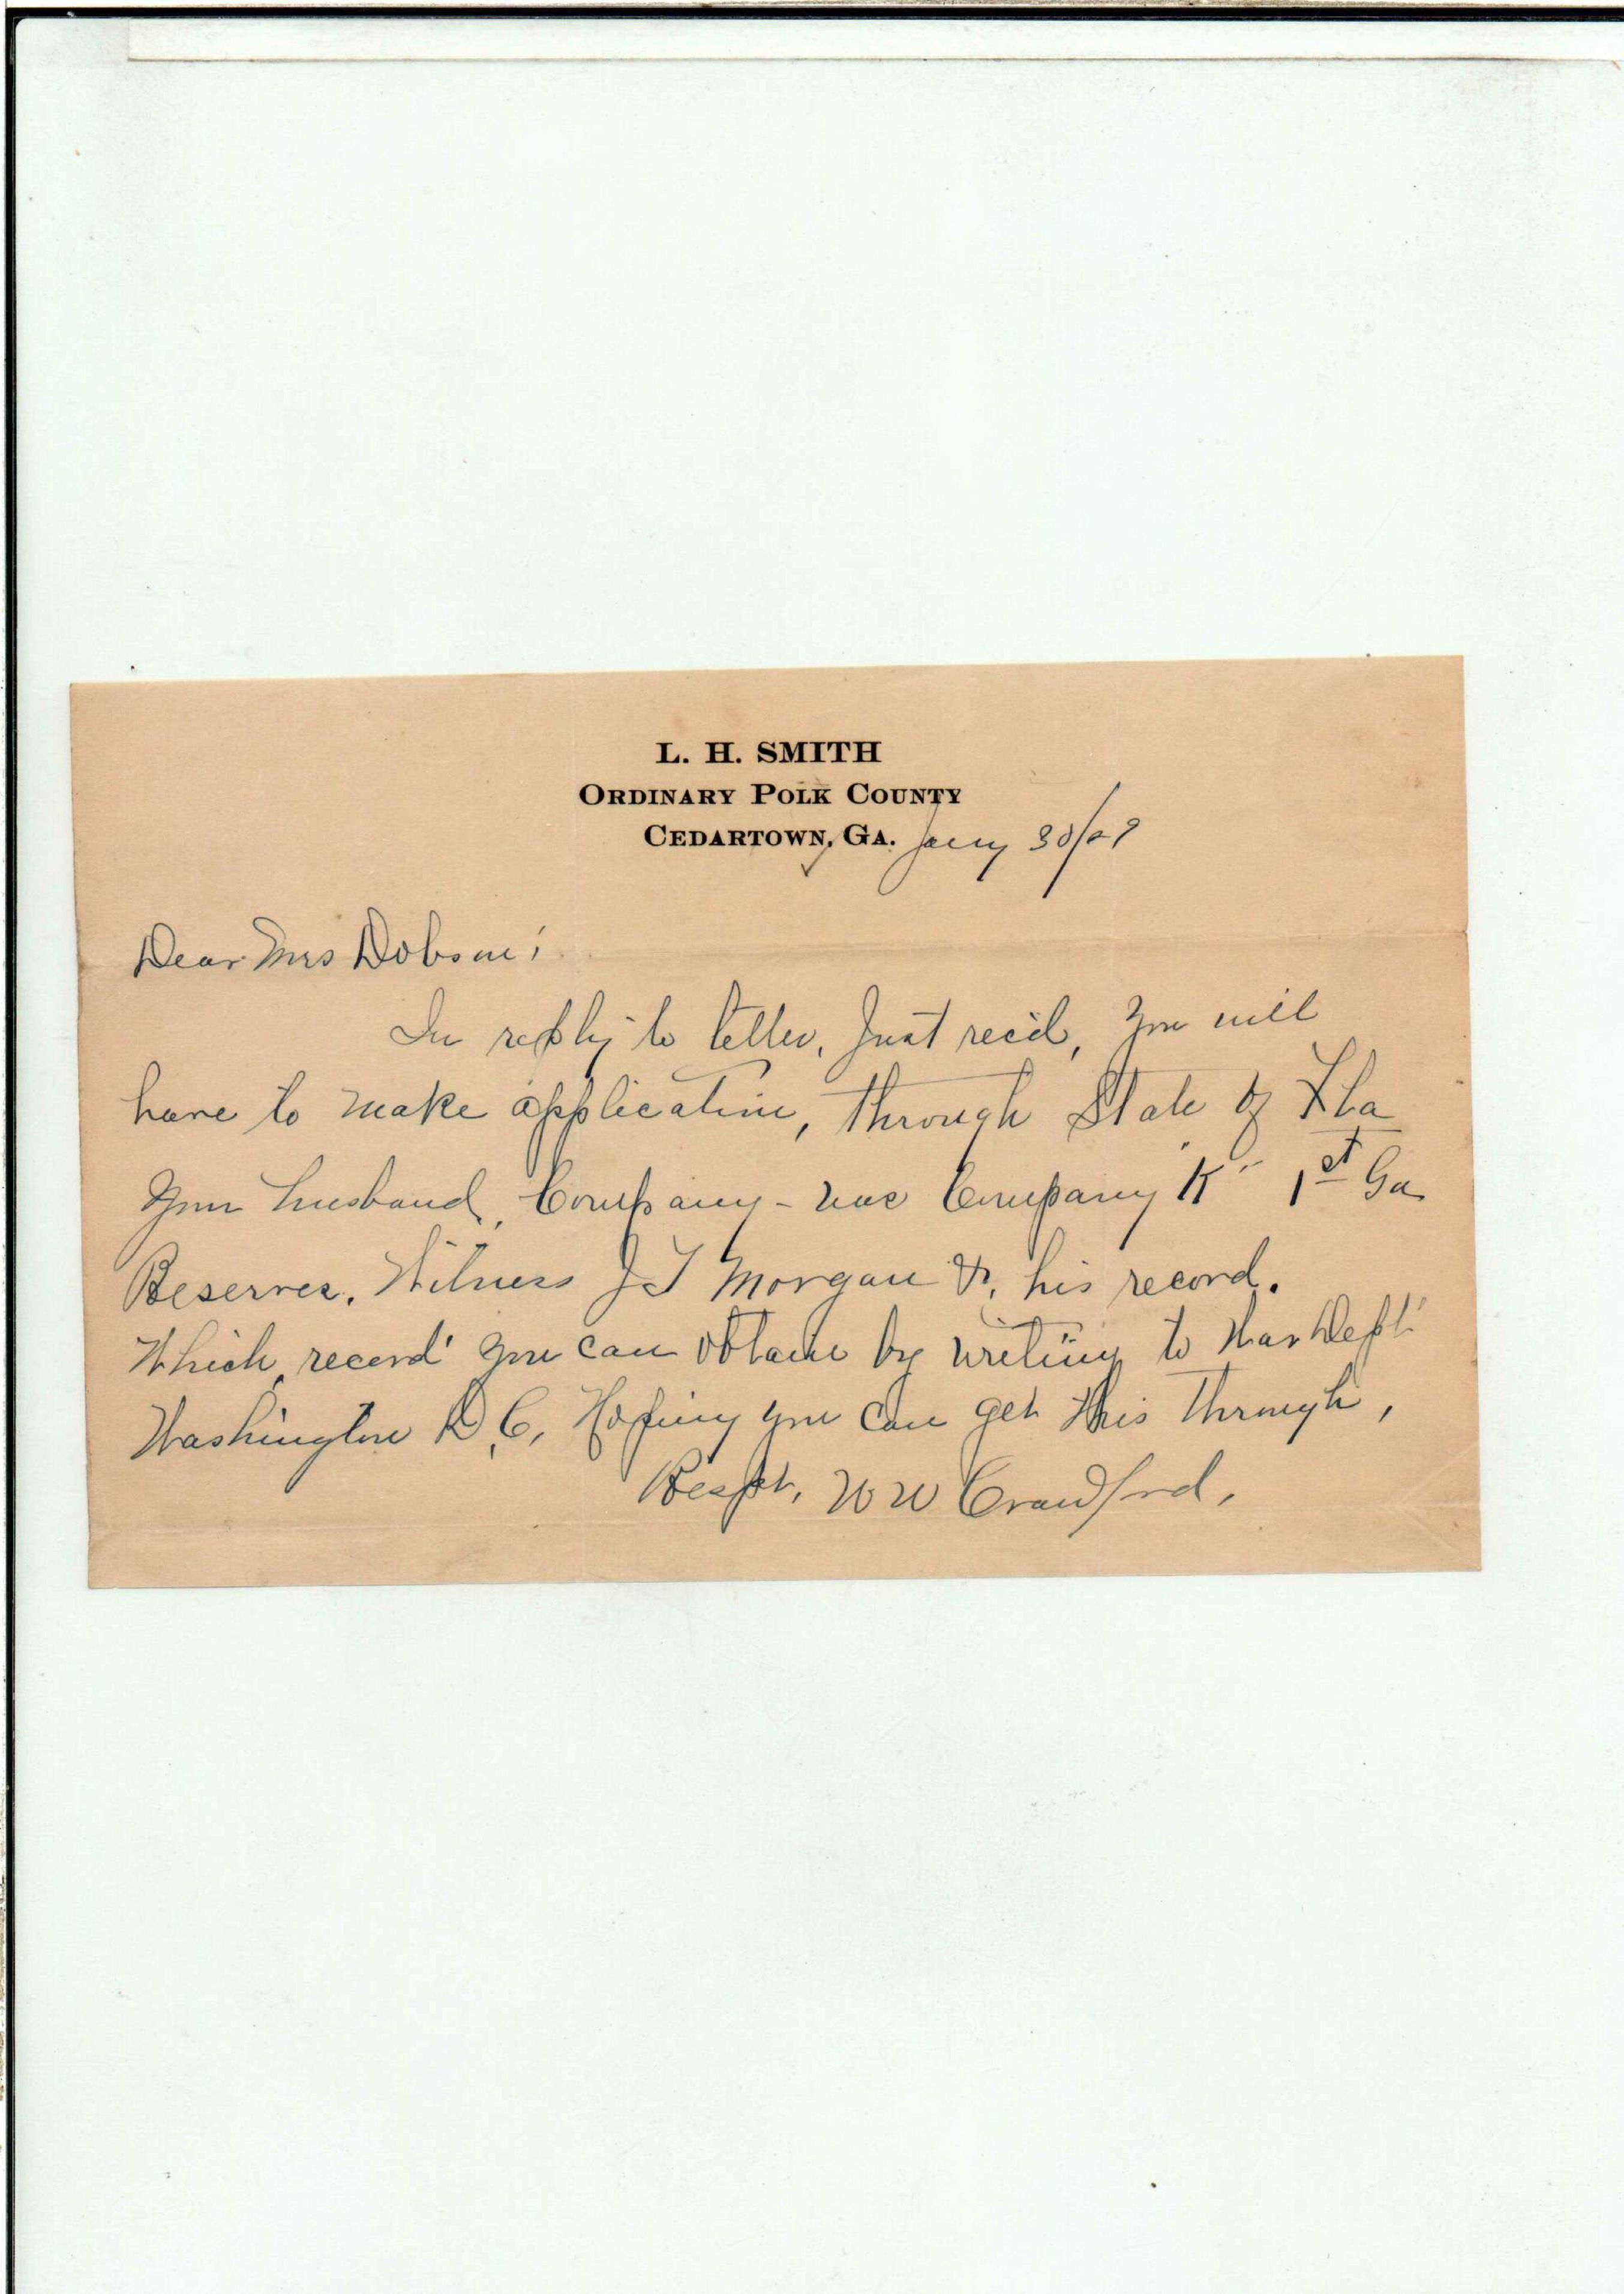 L. H. SMITH
ORDINARY POLK COUNTY
CEDARTOWN, GA. Jany 30/29
Dear Mrs Dobson;
In reply to letter, Just rec'd, you will
have to make application, through State of Fla
your husband, Company - was Company K" 1st Ga
Reserves, Witness J T Morgan & his record.
Which record you can obtain by writing to War Dept
Washington D, C, Hoping you can get this through,
Respt, W W Crawford,